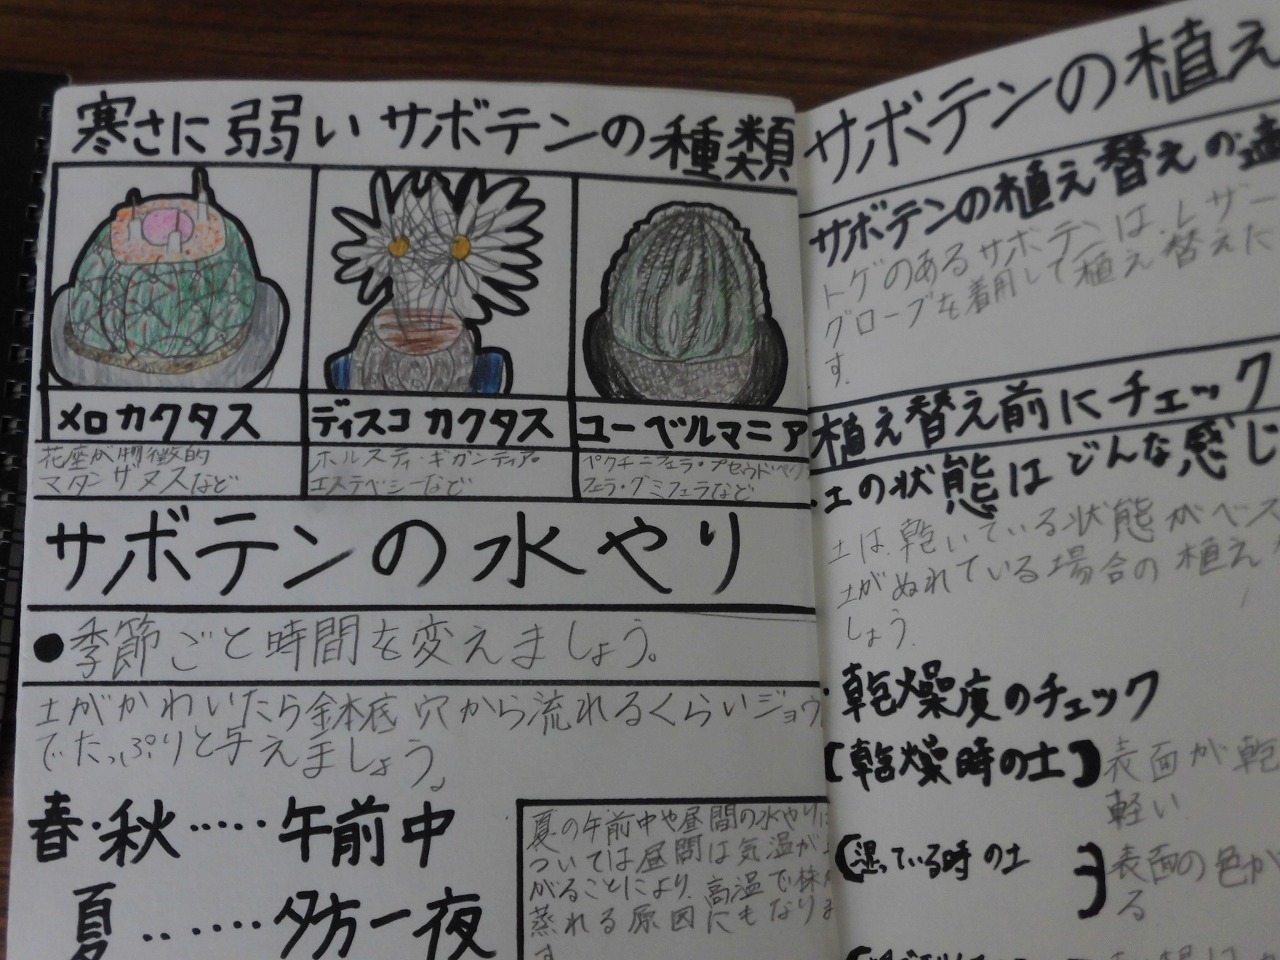 寒さに弱いサボテンの種類
メロカクタス
花座が特徴的
マタンザヌスなど
ディスコカクタス
ホルスティ・ギガンティア・
エステベシーなど
ユーベルマニア
ペクチニフェラ・プセウドペクチ
フェラ・グミフェラなど
サボテンの水やり
●季節ごと時間を変えましょう。
土がかわいたら鉢底穴から流れるくらいジョウ
でたっぷりと与えましょう。
春・秋・・・・・午前中
夏・・・・・・夕方一夜
夏の午前中や昼間の水やりに
ついては昼間は気温が上
がることにより、高温で株が
蒸れる原因にもなりま
す
サボテンの植え
サボテンの植え替えの
トゲのあるサボテンは、レザー
グローブを着用して植え替えた
す。
植え替え前にチェック
・土の状態はどんな感じ
土は、乾いている状態がベス
土がぬれている場合の植え
しょう。
・乾燥度のチェック
【乾燥時の土】表面が乾
軽い
【湿っている時の土】表面の色が
る